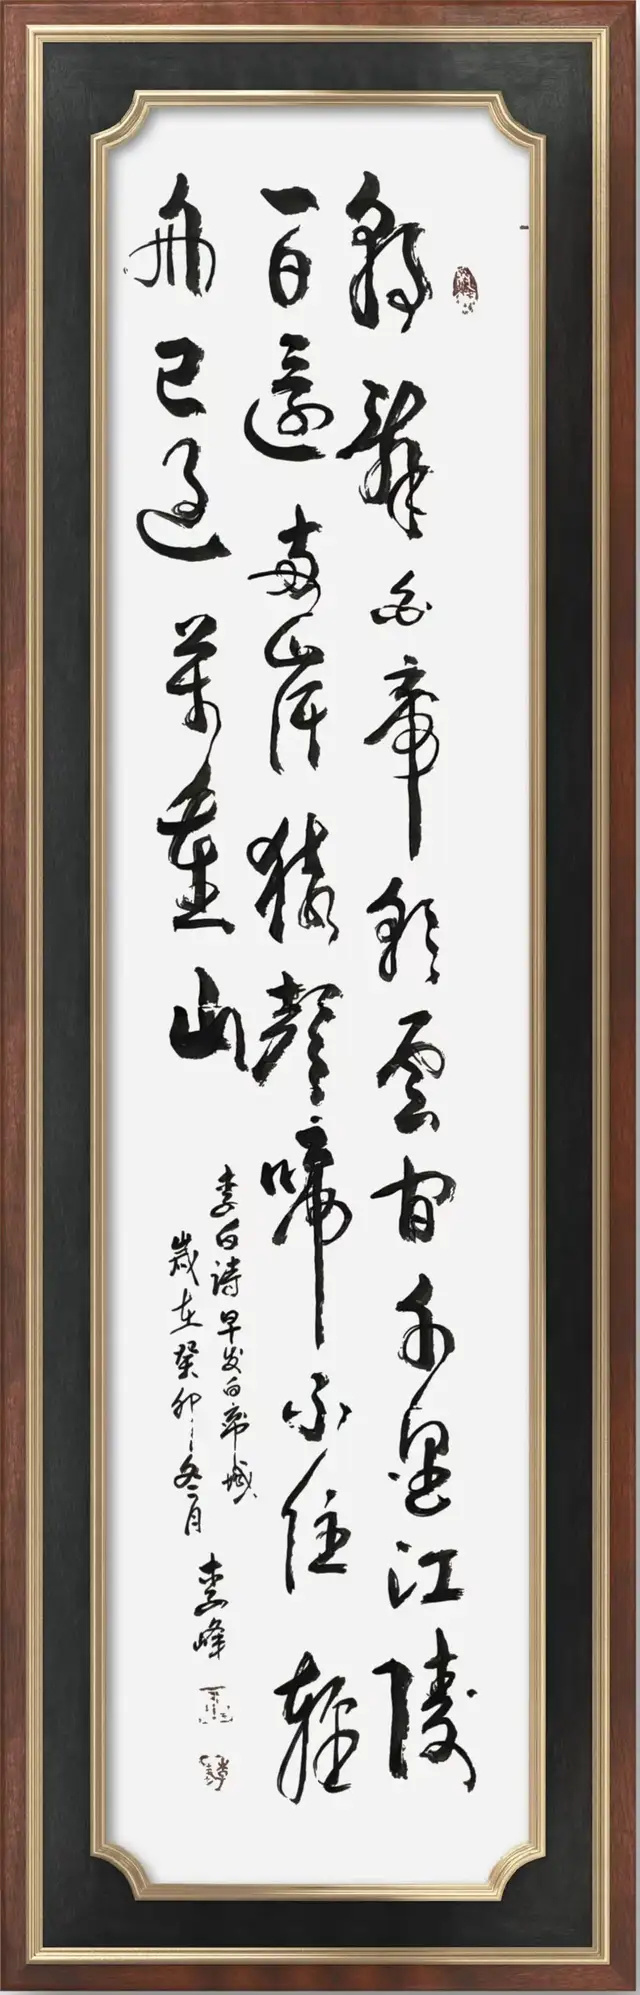 朝辭白帝彩雲間千里江陵
一日還兩岸猿聲啼不住輕
舟已過萬重山
李白诗早发白帝城
歲在癸卯冬月
李峰